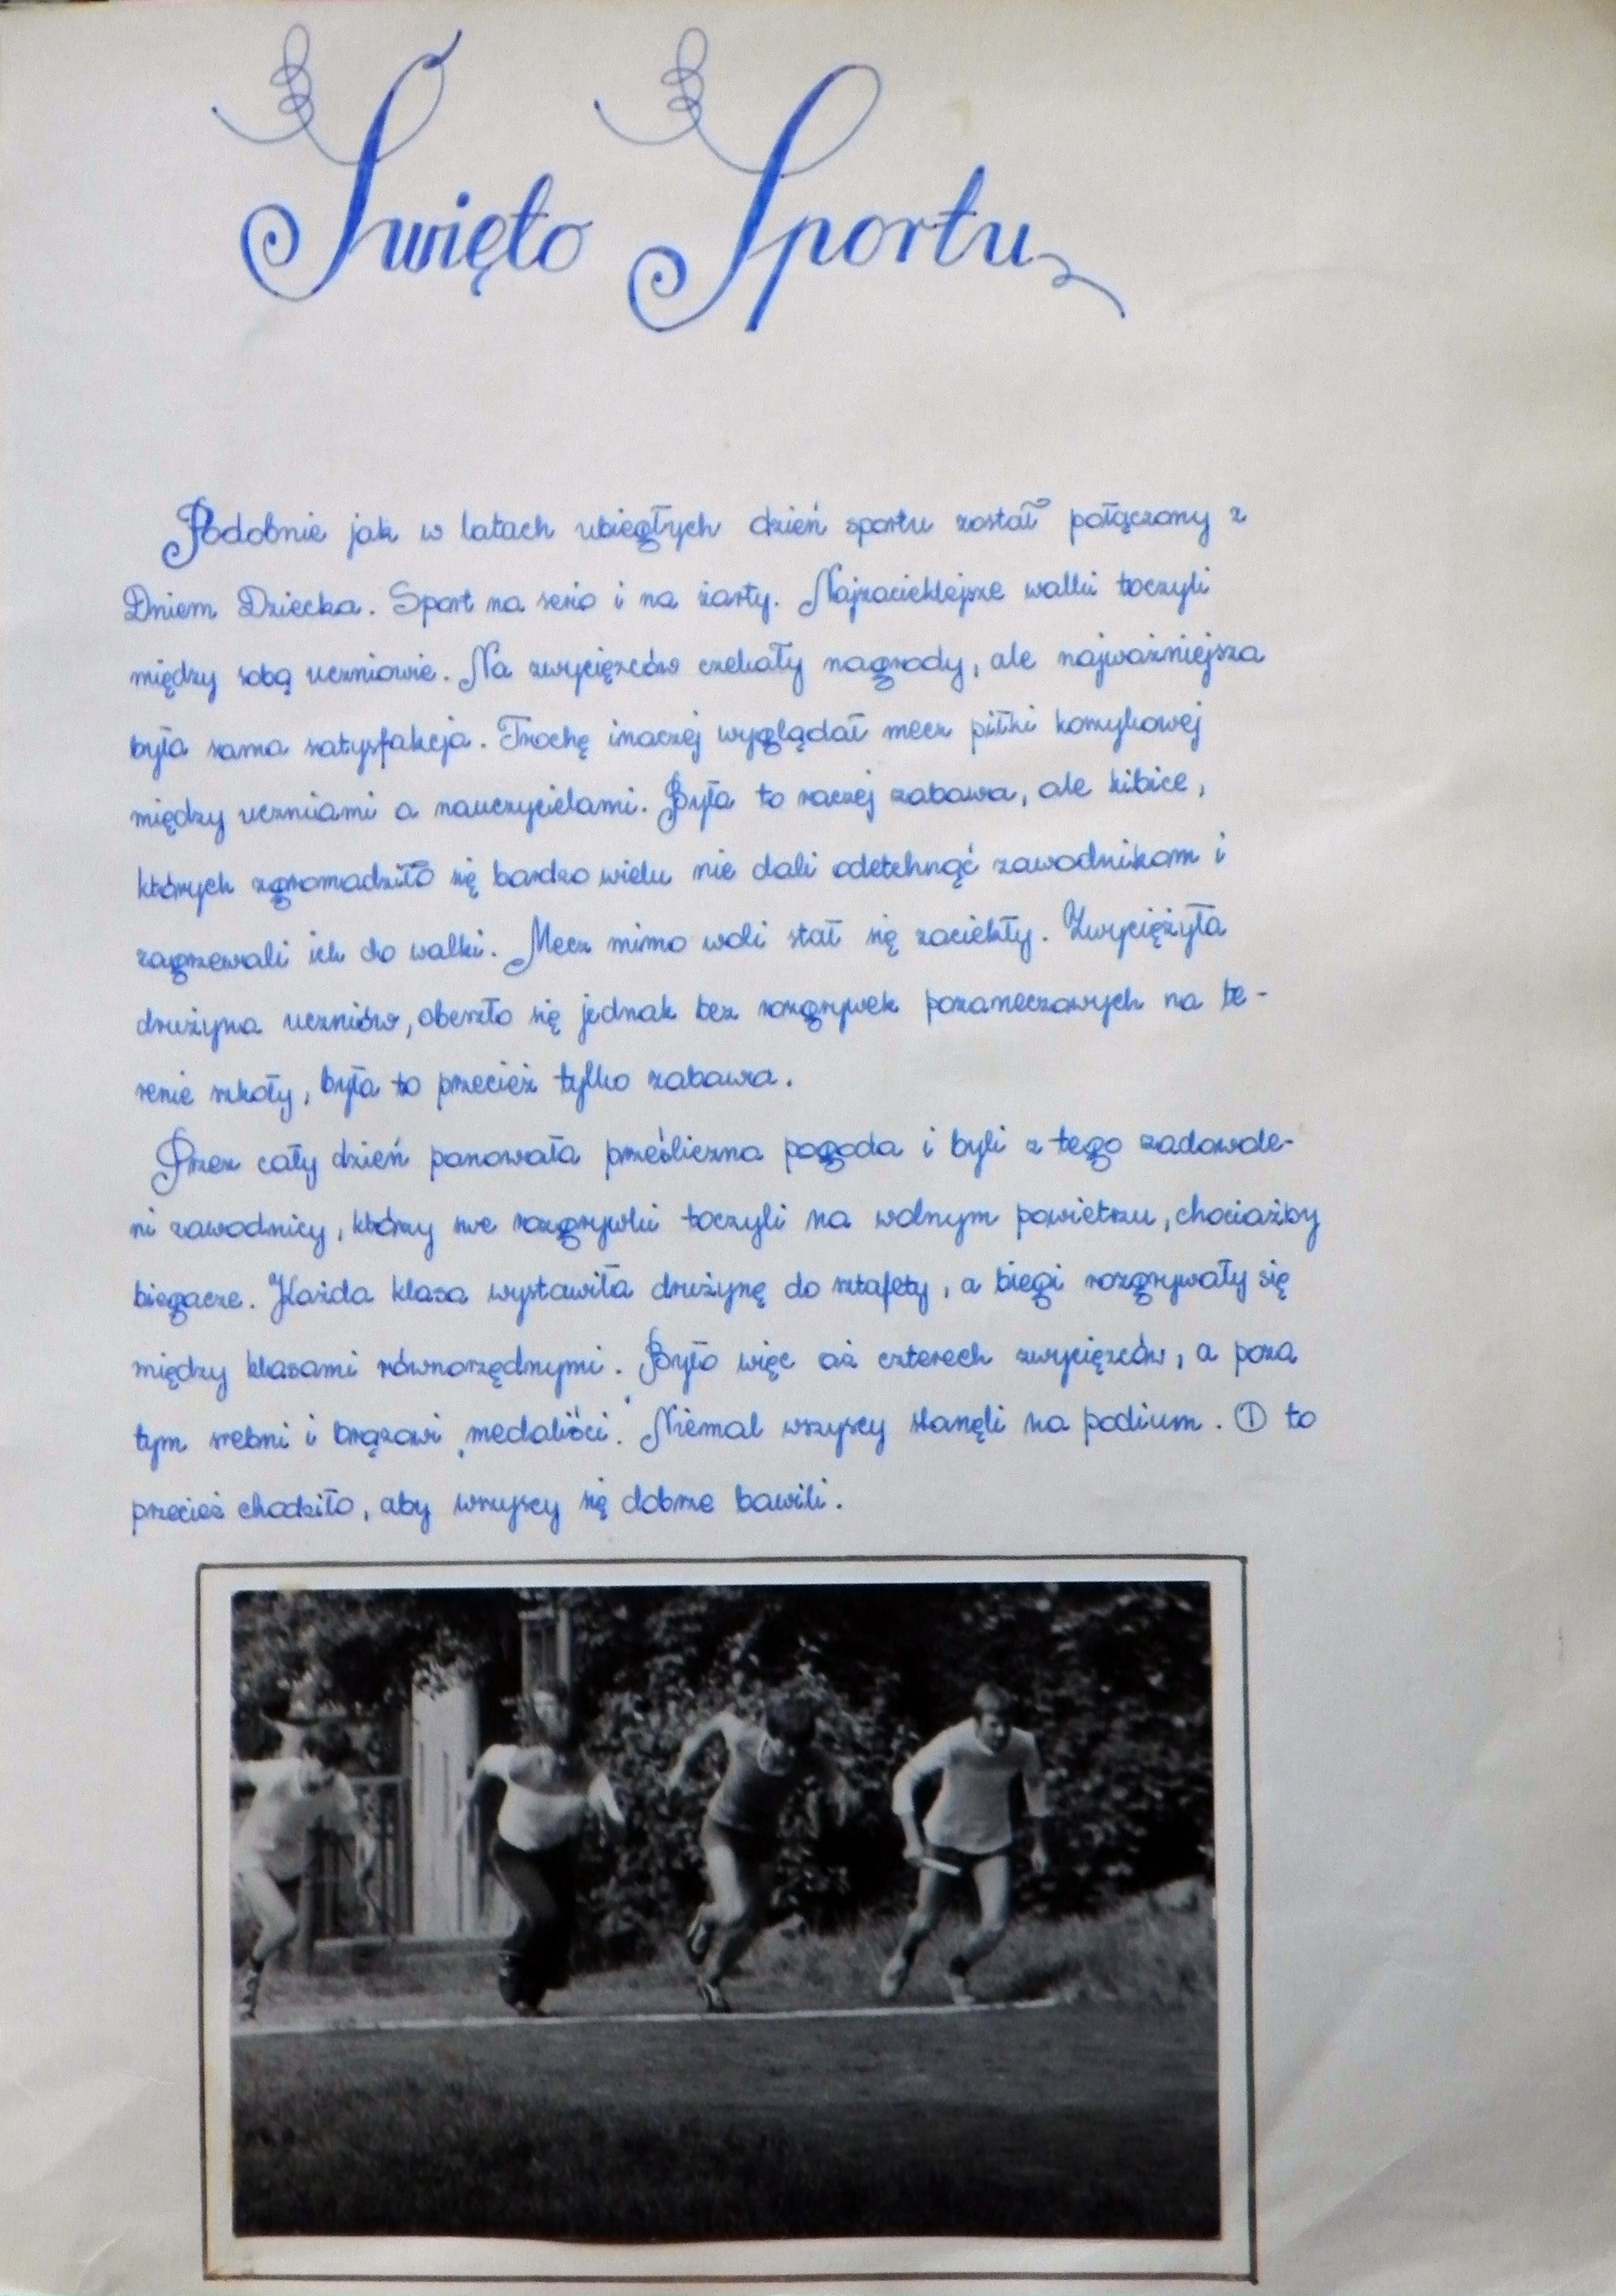 Święto Sportu
Podobnie jak w latach ubiegłych dzień sportu został połączony z
Dniem Dziecka. Sport na serio i na żarty. Najzacieklejsze walki toczyli
między sobą uczniowie. Na zwycięzców czekały nagrody, ale najważniejsza
była sama satysfakcja. Trochę inaczej wyglądał mecz piłki koszykowej
między uczniami a nauczycielami. Była to raczej zabawa, ale kibice,
których zgromadziło się bardzo wielu nie dali odetchnąć zawodnikom i
zagrzewali ich do walki. Mecz mimo woli stał się zaciekły. Zwyciężyła
drużyna uczniów, obeszło się jednak bez rozgrywek pozameczowych na te-
renie szkoły, była to przecież tylko zabawa.
Przez cały dzień panowała prześliczna pogoda i byli z tego zadowole-
ni zawodnicy, którzy swe rozgrywki toczyli na wolnym powietrzu, chociażby
biegacze. Każda klasa wystawiła drużynę do sztafety, a biegi rozgrywały się
między klasami równorzędnymi. Było więc aż czterech zwycięzców, a poza
tym srebni i brązowi "medaliści". Niemal wszyscy stanęli na podium. O to
przecież chodziło, aby wszyscy się dobrze bawili.